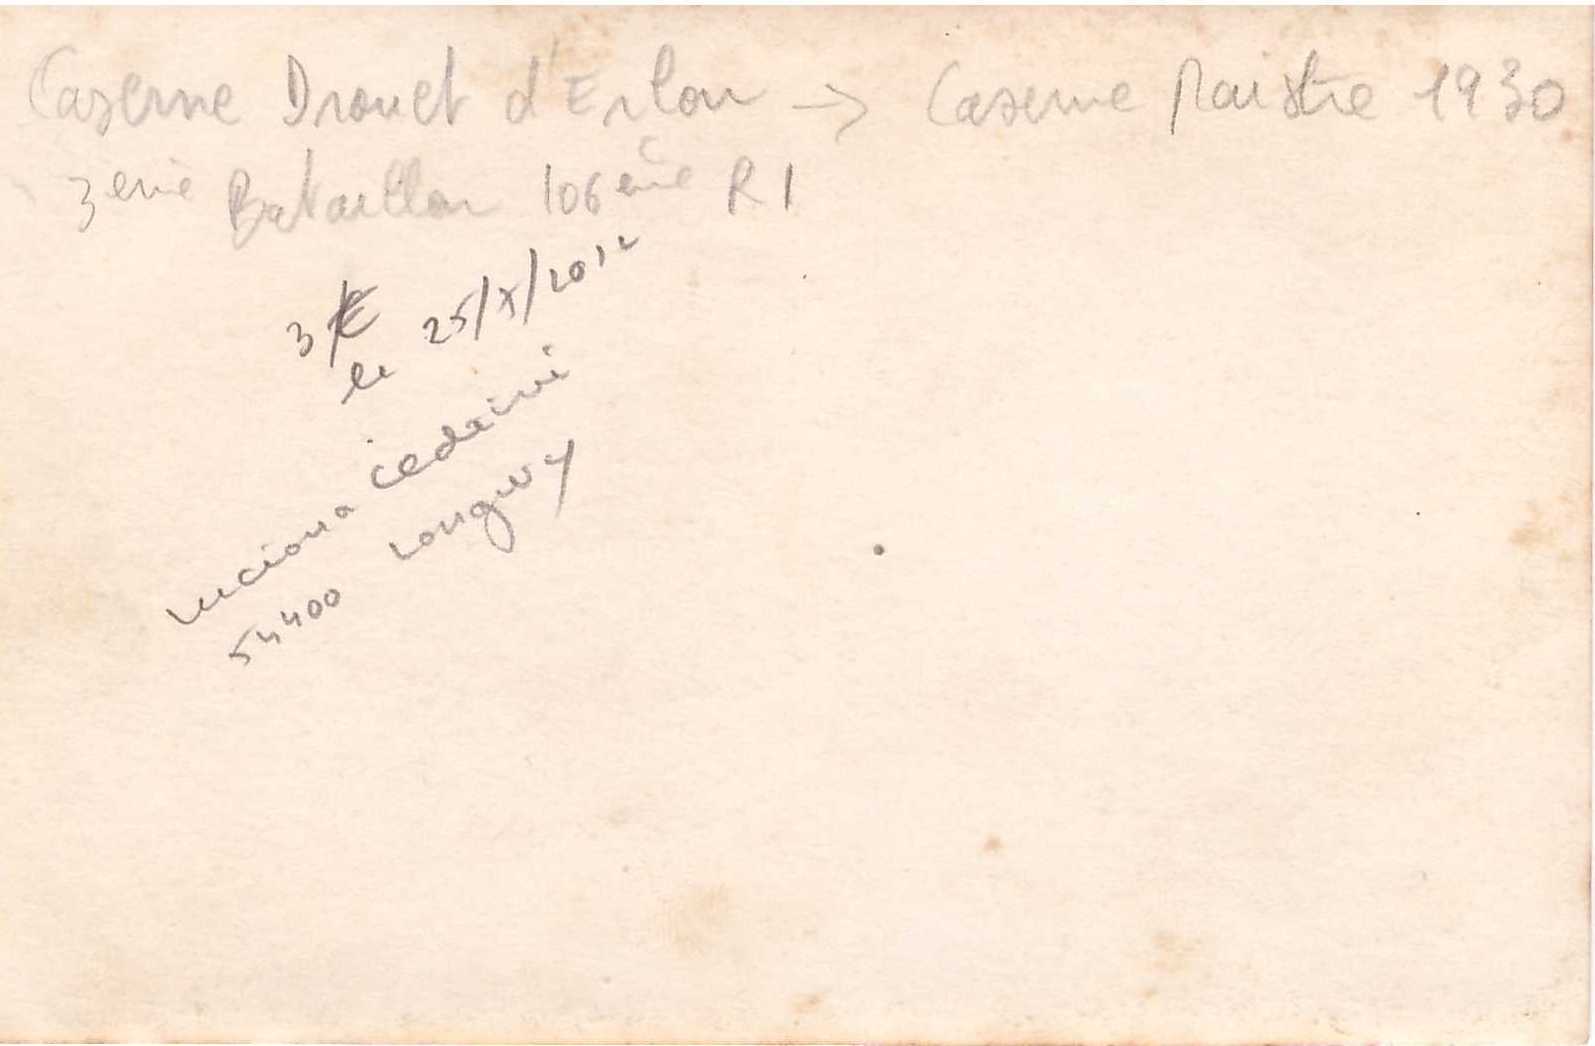 Caserne Drouet d'Erlon -> Caserne Maistre 1930
3eme Bataillon 106eme RI
3 €
le 25/X/2012
Luciona Cedrini
54400 Longwy